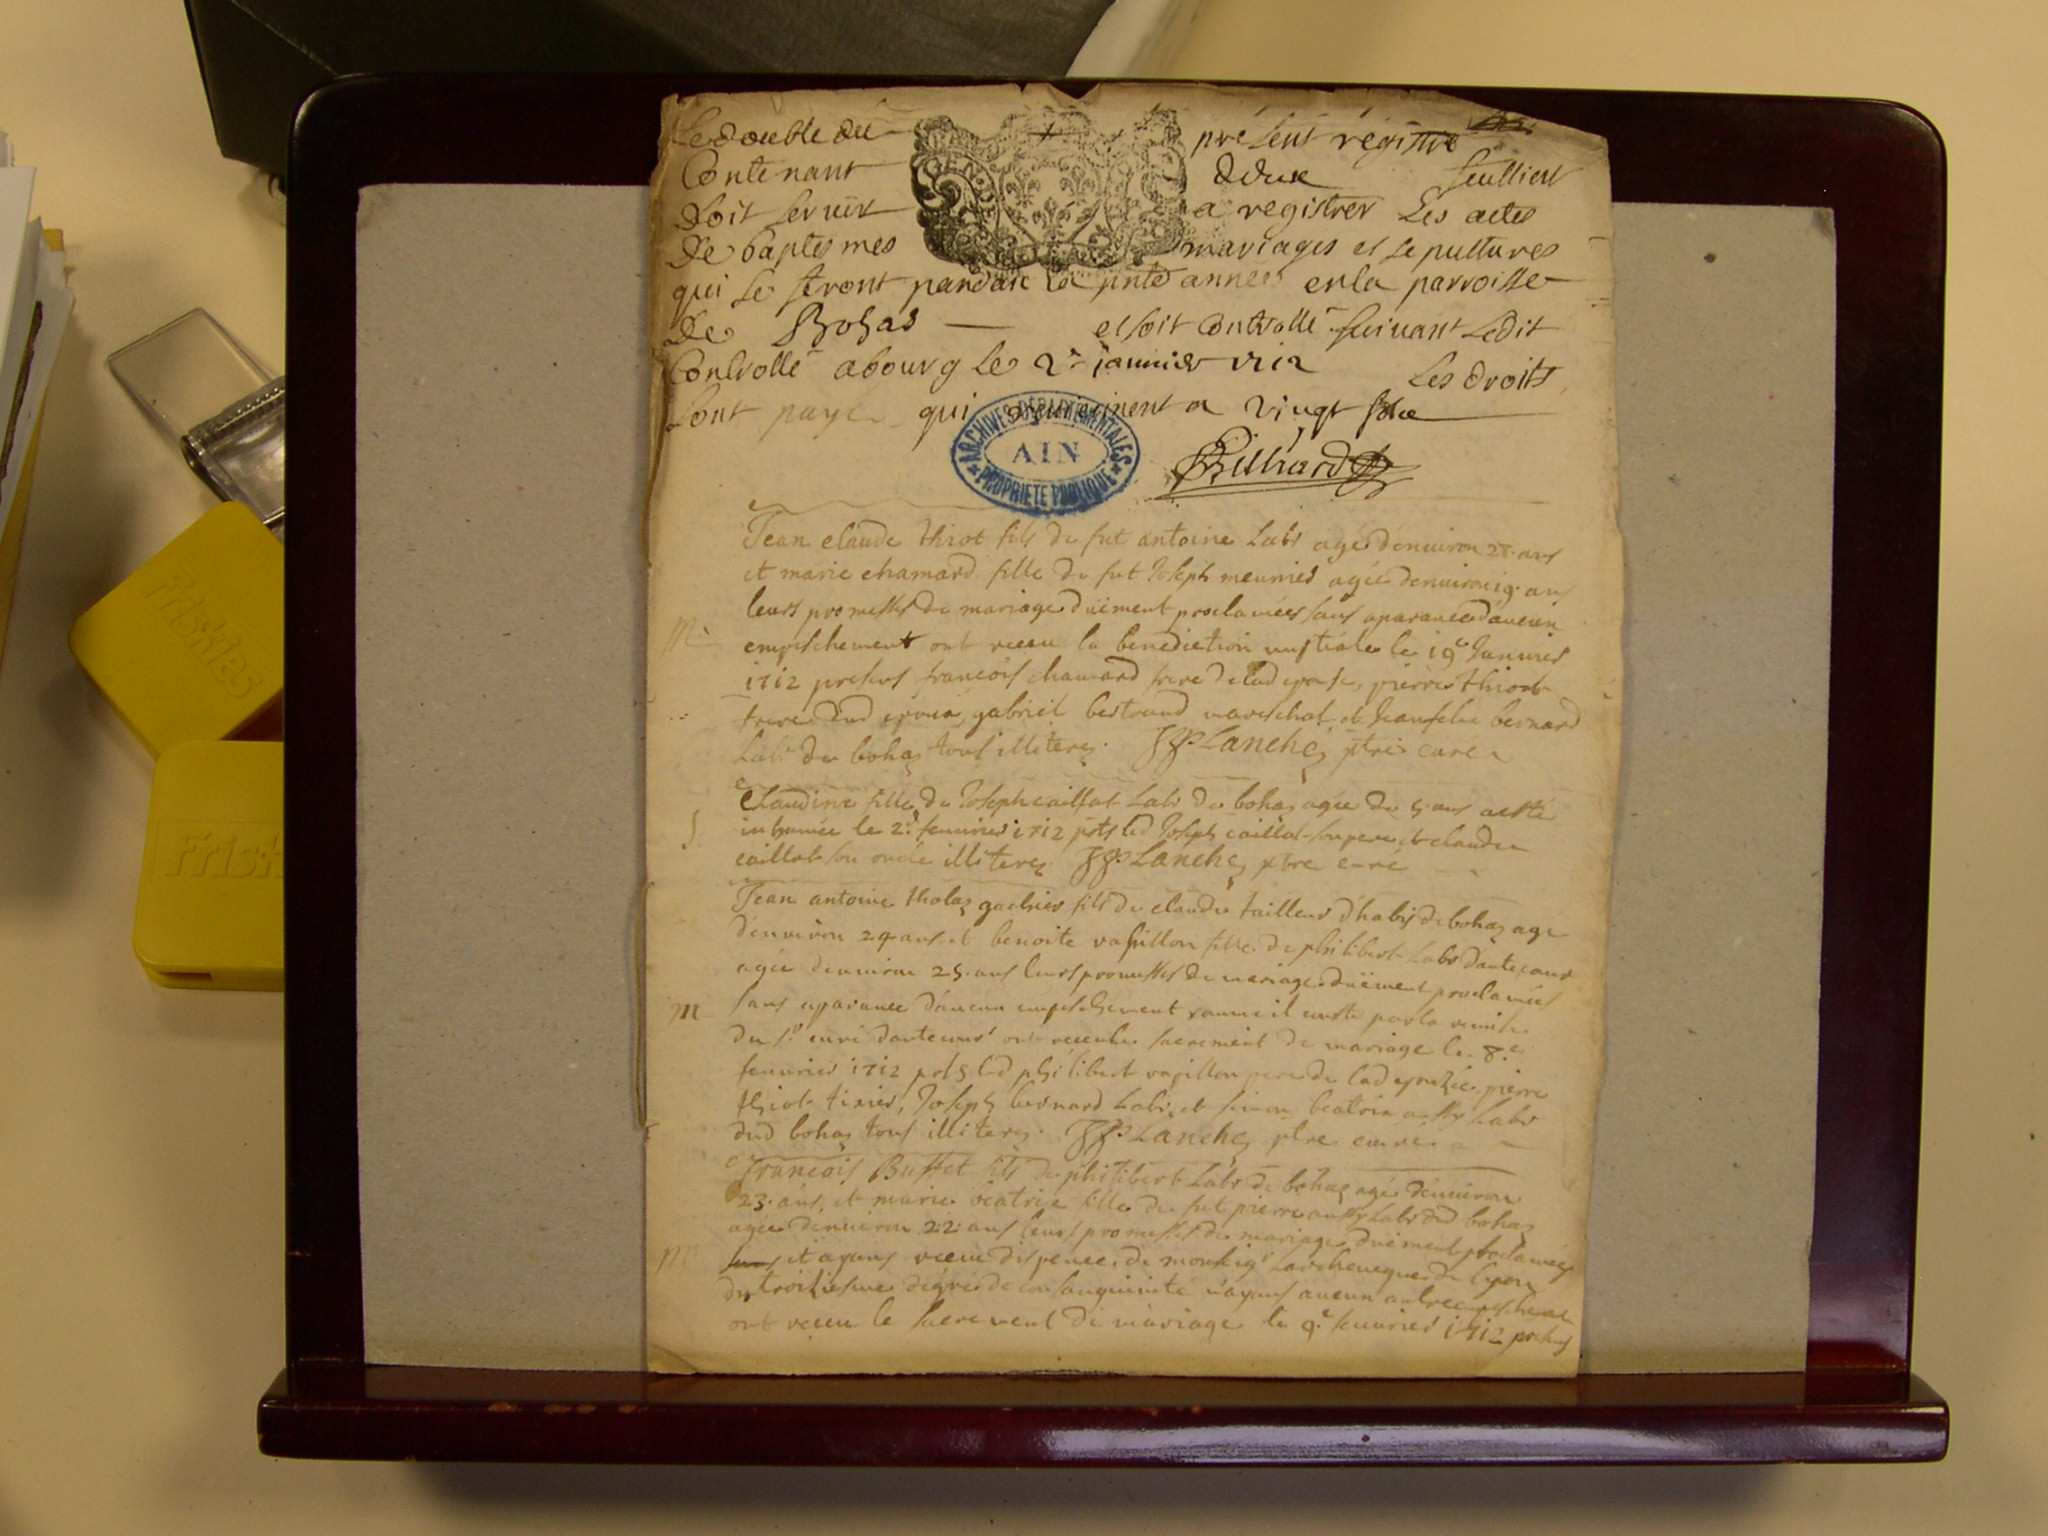 Le double du present registre
Contenant deux feulliets
doit servir a registrer Les actes
de baptesmes mariages et sepultures
qui se feront pandant la pnte année en la parroisse
de Bohas et soit controllé suivant Ledit
Controllé a bourg le 2e janvier 1712 Les droits
sont payé qui reviennent a vingt
ARCHIVES DÉPARTEMENTALES
AIN
PROPRIETE PUBLIQUE
Jean claude thiot fils de fut antoine Labr agé d'enuiron 28 ans
et marie chamard fille de fut Joseph meunier agée denuiron 19 ans
leurs promesses de mariage düement proclamées sans aparance d'aucun
M
empeschement ont receu la benediction nuptiale le 19e Januier
1712 presens françois chamard frere de lad epouse, pierre thiot
frere dud epoux, gabriel bertrand mareschal et Jean bernard
Labr de bohas tous illiterez. JJP. Lanchez ptre curé
Claudine fille de Joseph caillat Labr de bohas agée de 5 ans a esté
S
inhumée le 2e feurier 1712 pnts led Joseph caillat son pere et claude
caillat son oncle illiterez JJP. Lanchez ptre curé
Jean antoine tholas fils de claude tailleur d'habis de bohas agé
d'enuiron 24 ans et benoite vapillon fille de philibert Labr
agée denuiron 25 ans leurs promesses de mariage düement proclamées
M
sans aparance d'aucun empeschement comme il conste par la remise
du sr curé ont receu le sacrement de mariage le 8e
feurier 1712 pnts led philibert vapillon pere de lad epouzée pierre
thiot tixier, Joseph bernard Labr, et simon beatrix Labr
dud bohas tous illiterez. JJP. Lanchez ptre curé
françois Buffet fils de philibert Labr de bohas agé d'enuiron
23 ans, et marie beatrix fille de fut pierre Labr dud bohas
agée denuiron 22 ans leurs promesses de mariage düement proclamées
M
et ayans receu dispence de monseigr Larcheueque de lyon
du troisiesme degré de consanguinité n'ayans aucun autre empeschemt
ont receu le sacrement de mariage le 9e feurier 1712 presens
Friskies
Friskies